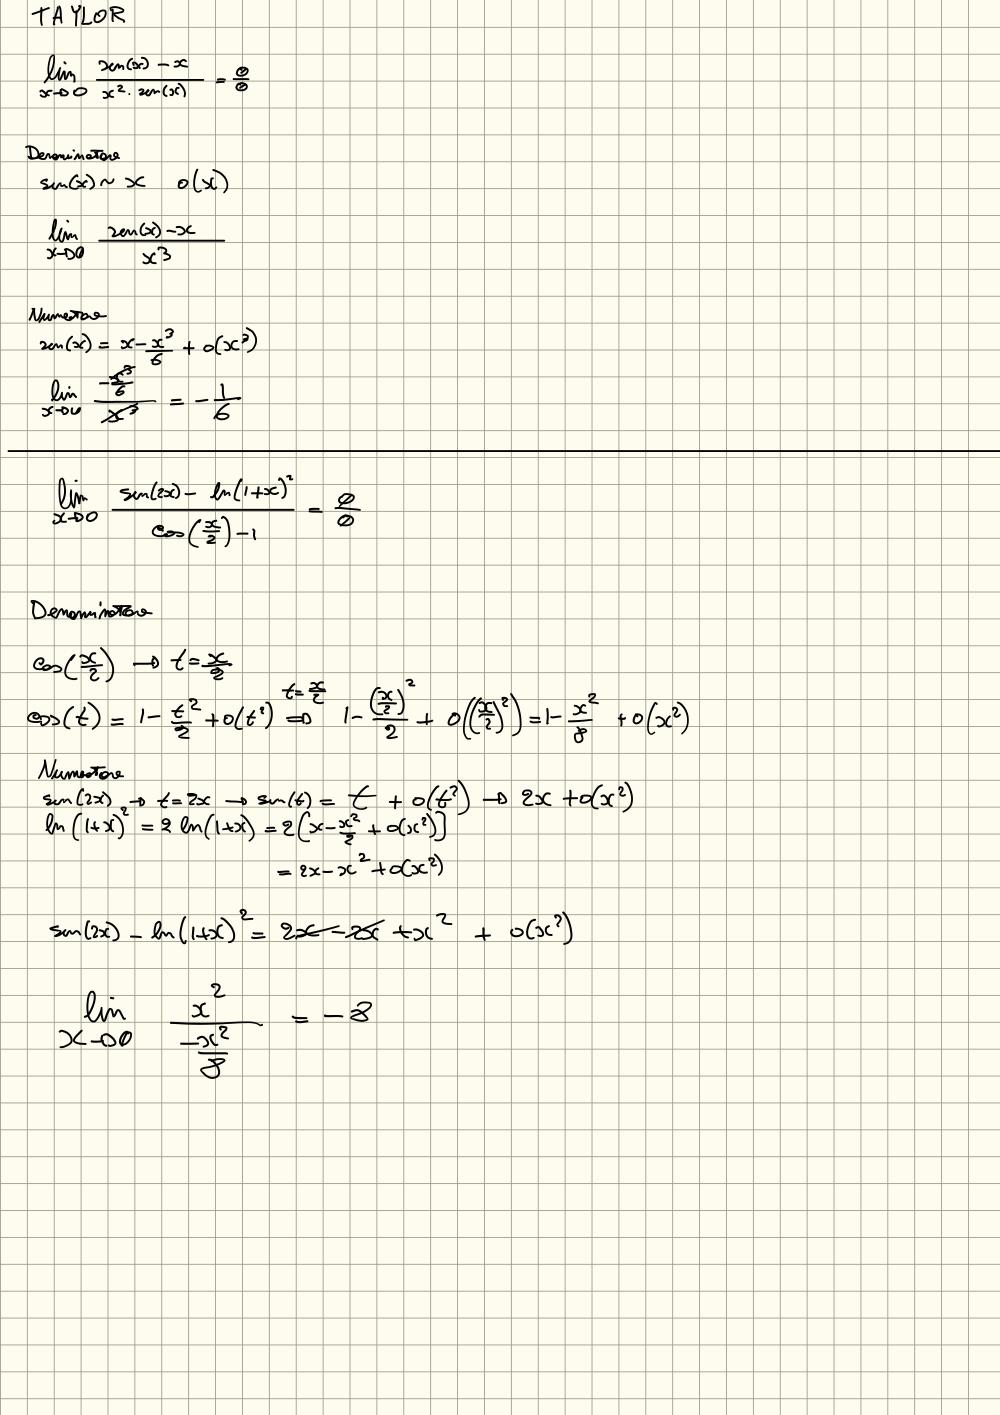 TAYLOR
lim x→0 (sen(x) - x)/(x² · sen(x)) = 0/0
Denominatore
sen(x) ~ x o(x)
lim x→0 (sen(x) - x)/x³
Numeratore
sen(x) = x - x³/6 + o(x³)
lim x→0 (-x³/6)/x³ = -1/6
lim x→0 (sen(2x) - ln(1+x)²)/(cos(x/2) - 1) = 0/0
Denominatore
cos(x/2) → t = x/2
cos(t) = 1 - t²/2 + o(t²) ⇒ t=x/2 1 - (x/2)²/2 + o((x/2)²) = 1 - x²/8 + o(x²)
Numeratore
sen(2x) → t = 2x → sen(t) = t + o(t²) → 2x + o(x²)
ln(1+x)² = 2 ln(1+x) = 2[x - x²/2 + o(x²)]
= 2x - x² + o(x²)
sen(2x) - ln(1+x)² = 2x - 2x + x² + o(x²)
lim x→0 x²/(-x²/8) = -8